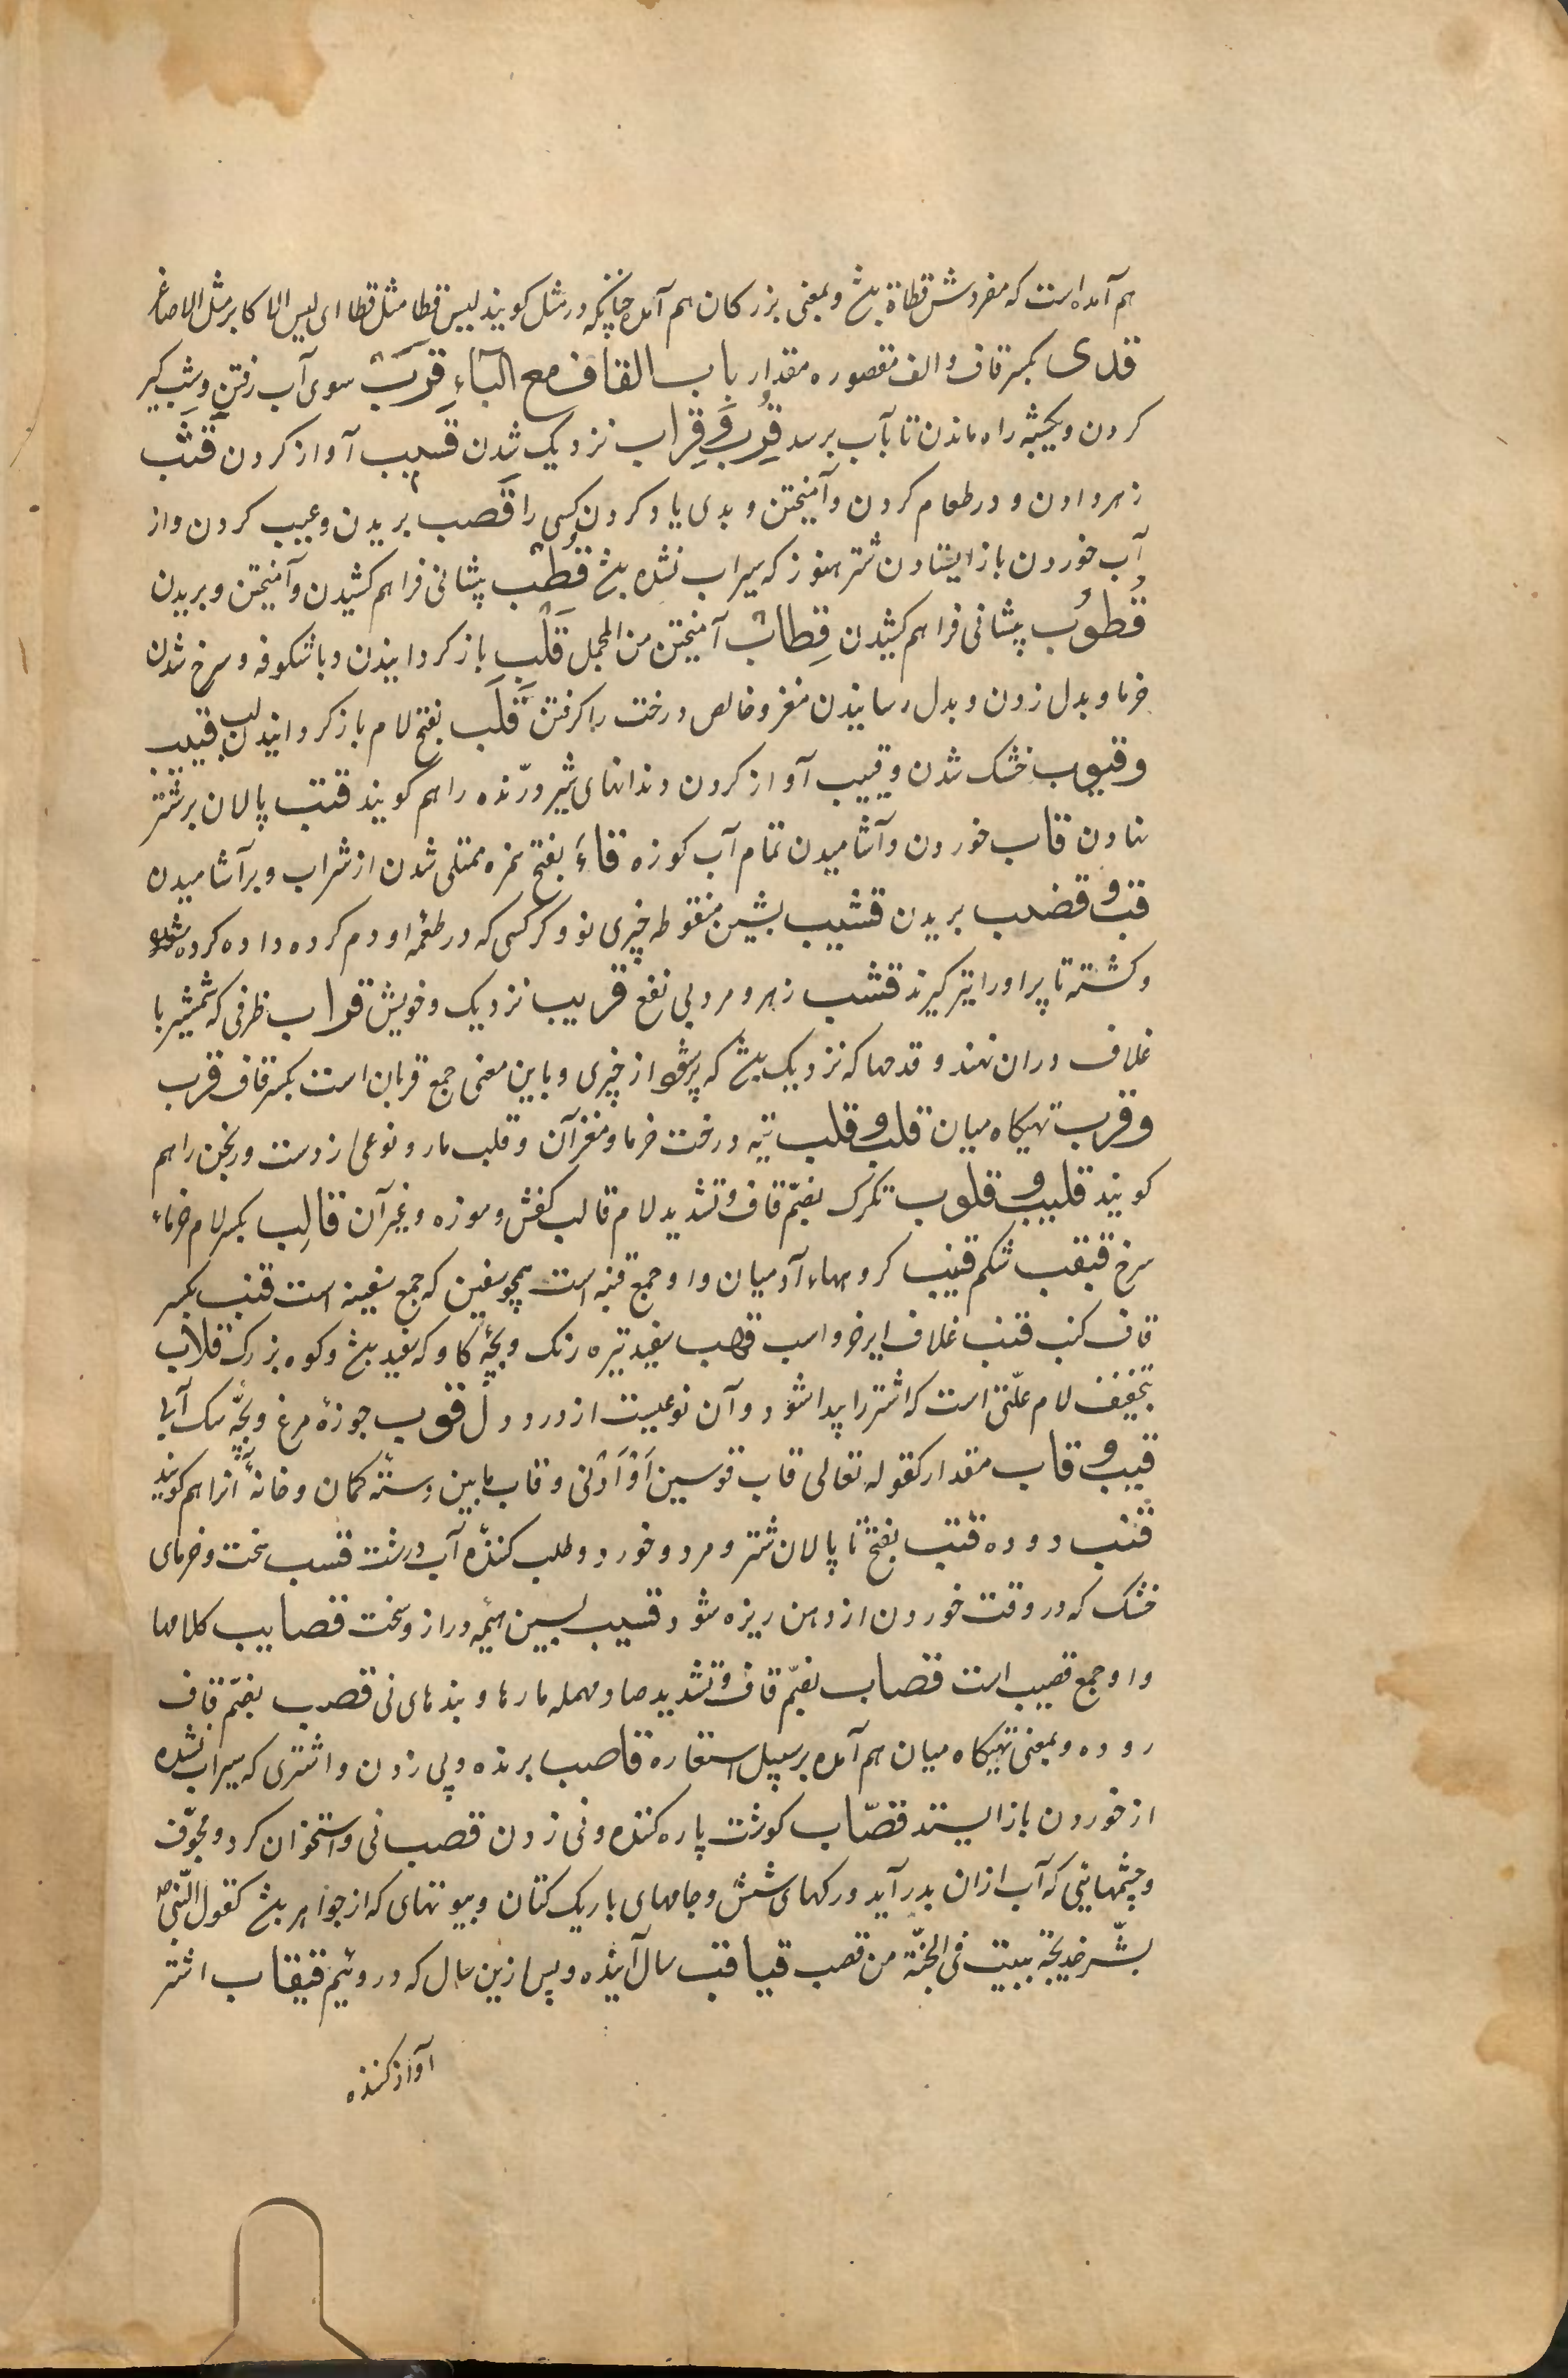 هم آمده است که مفردش قطاة بیخ و بمعنی بزرکان هم آمده چنانکه در مثل کویند لیس قطا مثل قطا ای لیس الاکابر مثل الاصاغر
قدی بکسر قاف و الف مقصوره مقدار باب القاف مع الباء قرب سوی آب رفتن و شب کیر
کردن و یکشبه راه ماندن تا بآب برسد قرب و قراب نزدیک شدن قسیب آواز کردن قشب
زهر دادن و در طعام کردن و آمیختن و بدی یاد کردن کسی را قصب بریدن و عیب کردن و از
آب خوردن باز ایستادن شتر هنوز که سیراب نشده بیخ قطب پیشانی فراهم کشیدن و آمیختن و بریدن
قطوب پیشانی فراهم کشیدن قطاب آمیختن من المجمل قلب باز کردانیدن و باشکوفه و سرخ شدن
خرما و بدل زدن و بدل رسانیدن مغز و خالص درخت را کرفتن قلب بفتح لام باز کردانیدن لب قبیب
و قبوب خشک شدن و قبیب آواز کردن دندانهای شیر درنده را هم کویند قتب پالان بر شتر
نهادن قاب خوردن و آشامیدن تمام آب کوزه قاء بفتح همزه ممتلی شدن از شراب و بر آشامیدن
قب و قضب بریدن قشیب بشین منقوطه چیزی نو و کرکسی که در طعمه او دم کرده داده کرده شود
و کشته تا پر او را تیر کیرند قشب زهر و مرد بی نفع قریب نزدیک و خویش قراب ظرفی که شمشیر با
غلاف دران نهند و قدحها که نزدیک بیخ که پر شود از چیزی و باین معنی جمع قربان است بکسر قاف قرب
و قرب تهیکاه میان قلب و قلب تیه درخت خرما و مغز آن و قلب مار و نوعی از دست ورنجن را هم
کویند قلیب و قلوب تکرک بضم قاف و تشدید لام قالب کفش و موزه و غیر آن قالب بکسر لام خرماء
سرخ قبقب شکم قنیب کروهاء آدمیان و او جمع قنبه است همچو سفین که جمع سفینه است قنب بکسر
قاف کنب قنب غلاف ایر خر و اسب قهب سفید تیره رنک و بچه کاو که سفید بیخ و کوه بزرک قلاب
بتخفیف لام علتی است که اشتر را پیدا شود و آن نوعیست از درد دل قوب جوزه مرغ و بچه سک آبی
قیب و قاب مقدار کقوله تعالی قاب قوسین او ادنی و قاب مابین دسته کمان و خانه آنرا هم کویند
قتب دوده قتب بفتح تا پالان شتر و مرد و خورد و طلب کننده آب درشت قسب سخت و خرمای
خشک که در وقت خوردن از دهن ریزه شود قسیب بسین هیمه دراز و سخت قصایب کلامها
و او جمع قصیب است قصاب بضم قاف و تشدید صاد مهمله مارها و بندهای نی قصب بضم قاف
روده و بمعنی تهیکاه میان هم آمده بر سبیل استعاره قاصب برنده و پی زدن و اشتری که سیراب نشده
از خوردن باز ایستد قصّاب کوشت پاره کننده و نی زدن قصب نی و استخوان کرد و مجوّف
و چشمهائیی که آب ازان بدر آید و رکهای شش و جامهای باریک کتان و بیوتهای که از جواهر بیخ کقول النبی ص
بشّر خدیجة ببیت فی الجنّة من قصب قیاقب سال آینده و پس ازین سال که درویئم قیقاب اشتر
آواز کننده